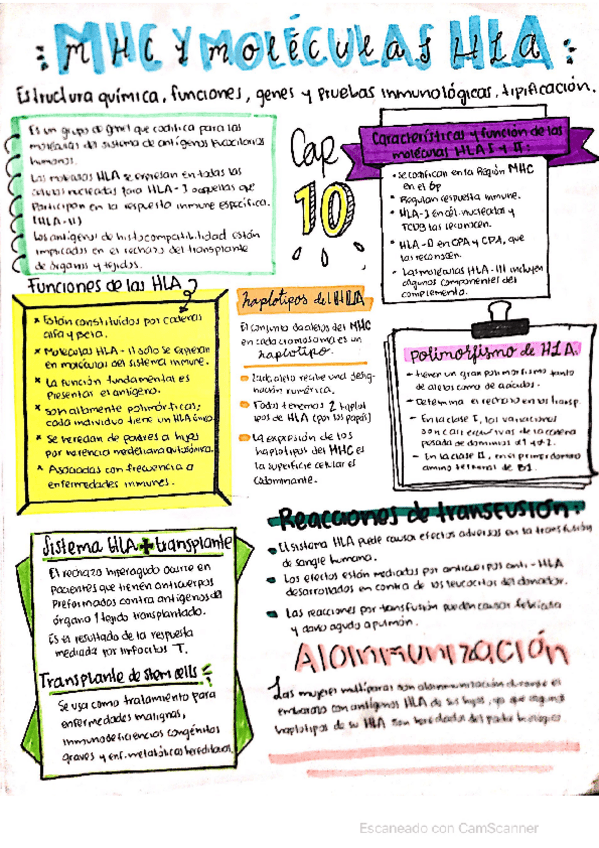 MHC Y MOLÉCULAS HLA
Estructura química, funciones, genes y pruebas inmunológicas, tipificación.
Cap
10
Es un grupo de que codifica para las
moléculas del sistema de antígenos leucocitarios
humanos.
Las moléculas HLA se expresan en todas las
células nucleadas para HLA-I o aquellas que
participan en la respuesta inmune específica.
(HLA-II)
Los antígenos de histocompatibilidad están
implicados en el rechazo del transplante
de órganos y tejidos.
Características y función de las
moléculas HLA I y II:
• se codifican en la Región MHC
en el 6p
• Regulan respuesta inmune.
• HLA-I en cél. nucleadas y
TCD8 las reconocen.
• HLA-II en CPA y que
las reconocen.
• Las moléculas HLA-III incluyen
algunos componentes del
complemento.
Funciones de las HLA
* Están constituidos por cadenas
alfa y beta.
* Moléculas HLA-II solo se expresan
en moléculas del sistema inmune.
* La función fundamental es
presentar el antígeno.
* son altamente polimórficas;
cada individuo tiene un HLA único.
* Se heredan de padres a hijos
por herencia mendeliana autosómica.
* Asociadas con frecuencia a
enfermedades inmunes.
haplotipos del HLA
El conjunto de alelos del MHC
en cada cromosoma es un
haplotipo.
Cada alelo recibe una desig-
nación numérica.
Todos tenemos 2 haplot
ipos de HLA (por los papás)
La expresión de los
haplotipos del MHC es
la superficie celular es
codominante.
Polimorfismo de HLA.
- tienen un gran polimorfismo tanto
de alelos como de
- Determina el rechazo en los transp.
- En la clase I, las variaciones
son casi exclusivas de la cadena
pesada de dominios α1 y α2.
- En la clase II, en el primer dominio
amino terminal de B1.
Sistema HLA + transplante
El rechazo hiperagudo ocurre en
pacientes que tienen anticuerpos
preformados contra antígenos del
órgano / tejido transplantado.
Es el resultado de la respuesta
mediada por linfocitos T.
Transplante de stem cells
Se usa como tratamiento para
enfermedades malignas,
inmunodeficiencias congénitas
graves y enf. metabólicas hereditarias.
Reacciones de transfusión:
El sistema HLA puede causar efectos adversos en la transfusión
de sangre humana.
Los efectos están mediados por anticuerpos anti-HLA
desarrollados en contra de los leucocitos del donador.
Las reacciones por transfusión pueden causar febrícula
y daño agudo a pulmón.
Aloinmunización
Las mujeres multíparas son aloinmunización durante el
embarazo con antígenos HLA de sus hijos, ya que algunos
haplotipos de su HLA son heredados del padre biológico.
Escaneado con CamScanner